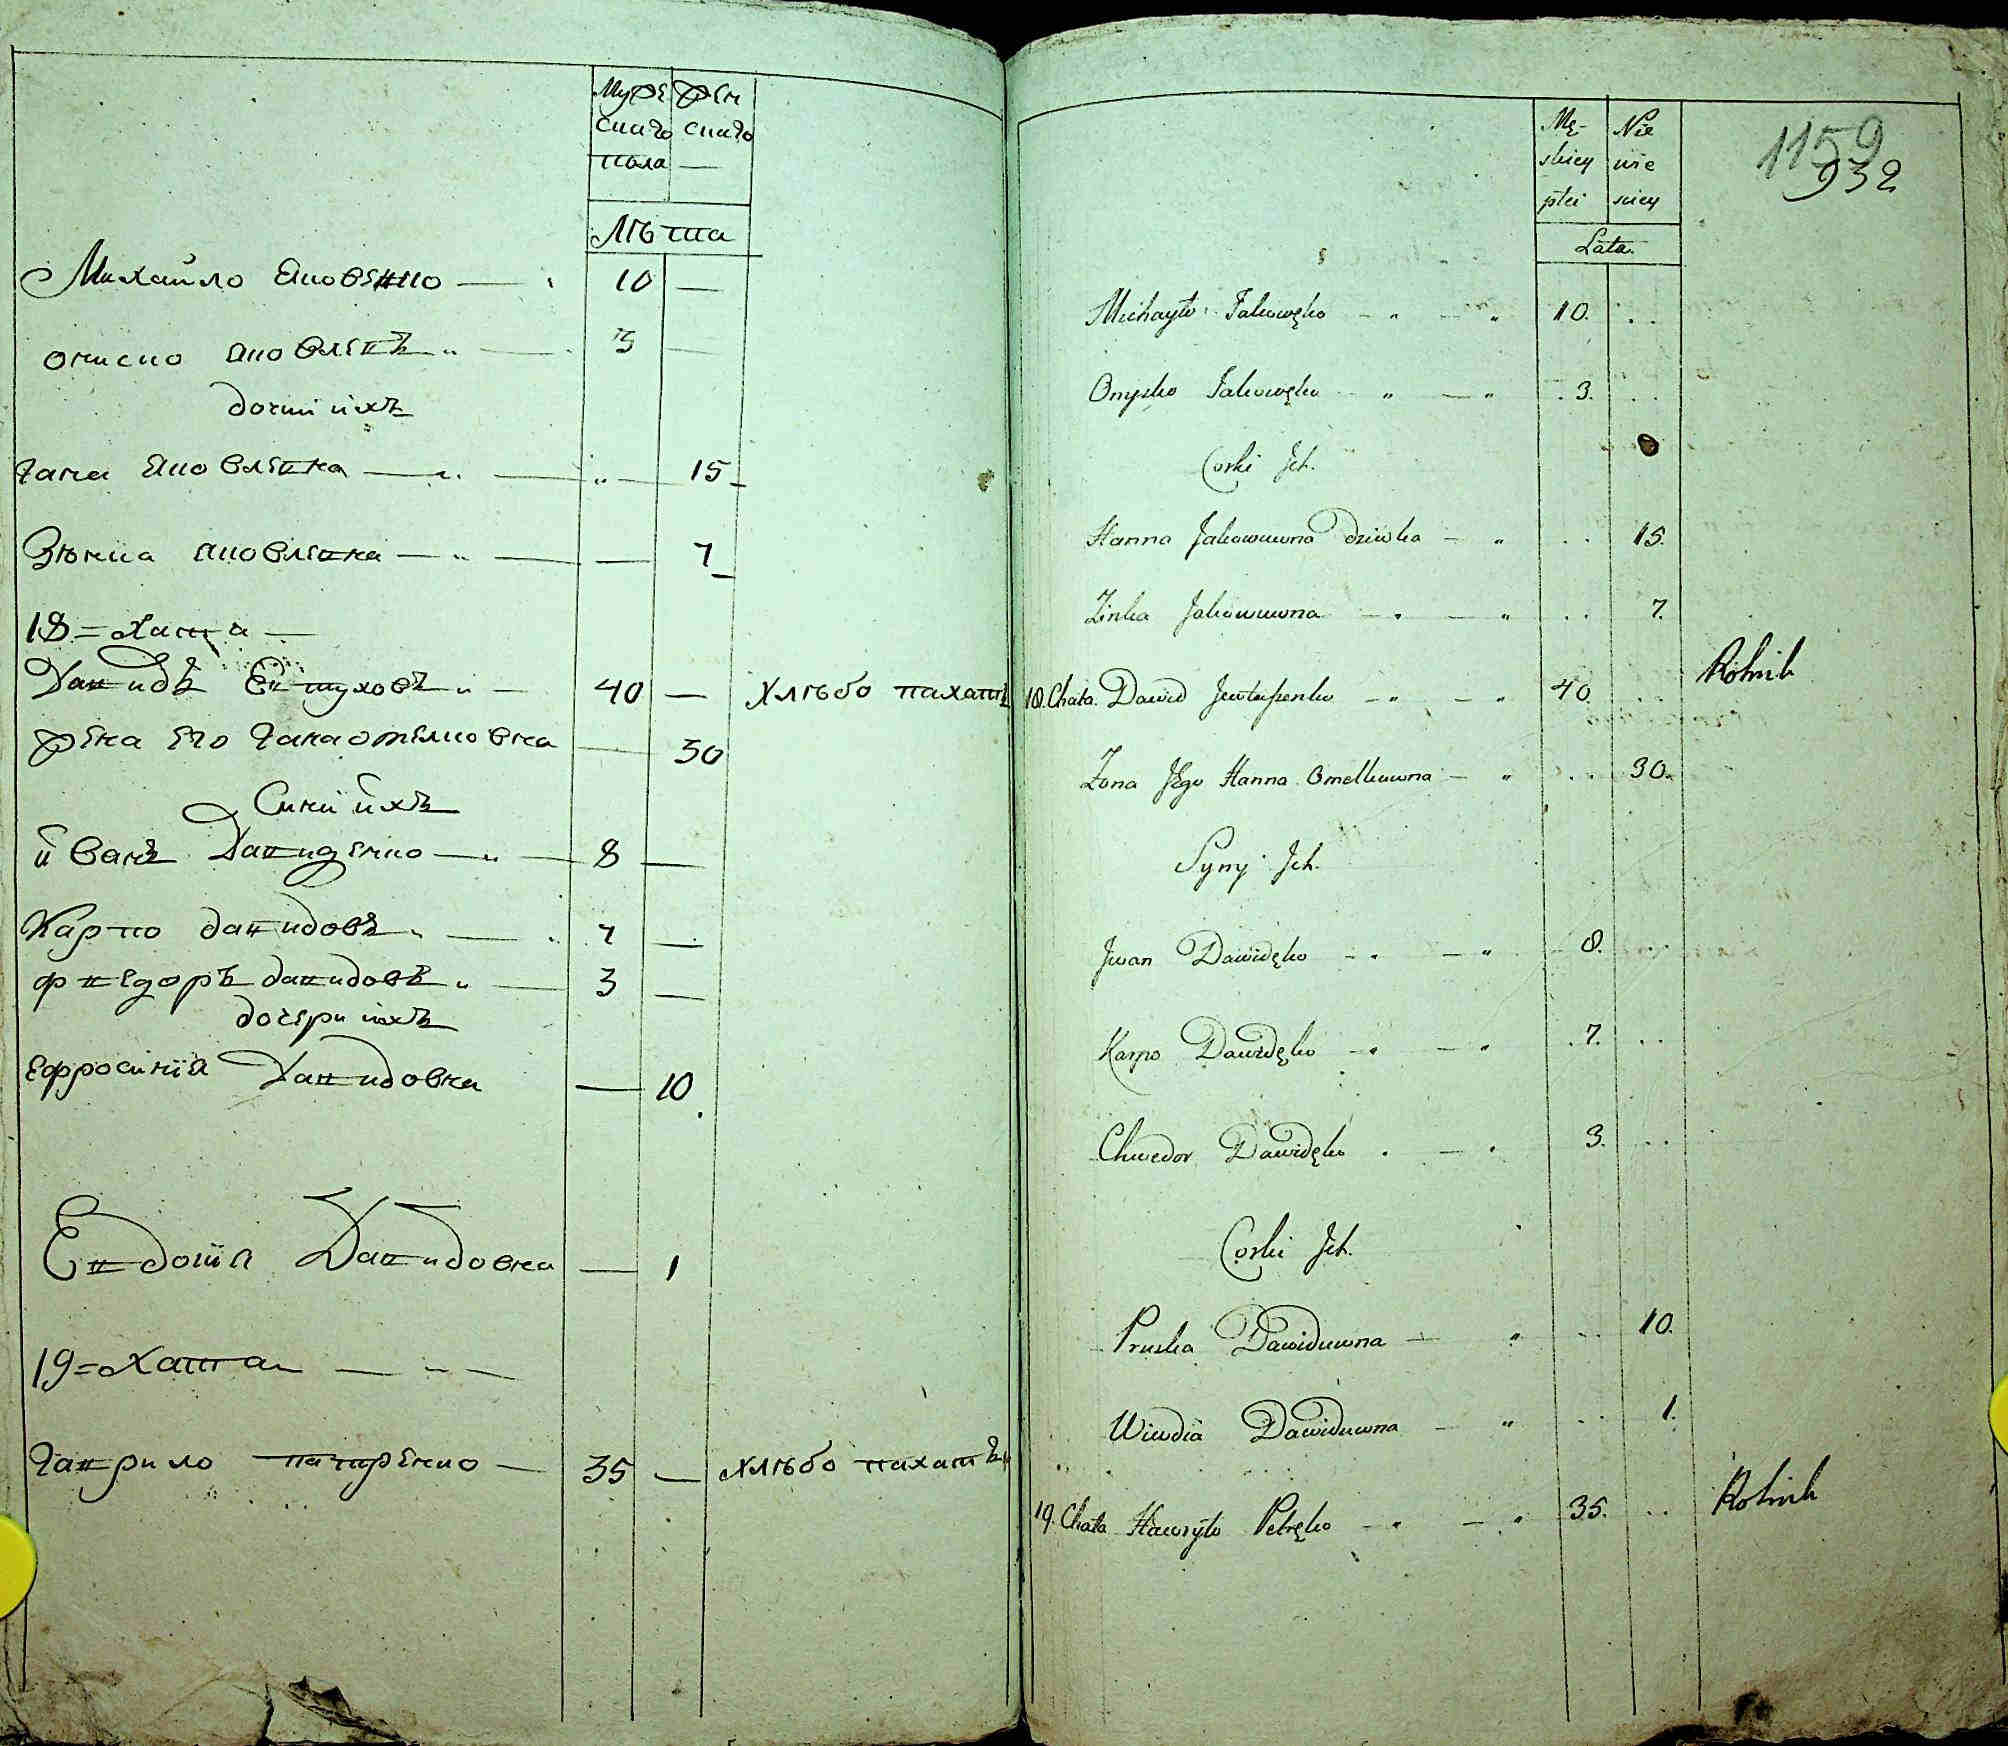 Муже Жен
скаго скаго
пола —
Лѣта
Михайло Яковенко — 10 —
Ониско Яковлевъ — 3 —
дочки ихъ
Гана Яковлевна — 15
Зѣнка Яковлевна — — 7
18 = Хата —
Давидъ Евтуховъ — 40 — Хлѣбо пахатъ
Жена Его Гана Омелковна — 30
Сини ихъ
иванъ Давиденко — 8 —
Карпо давидовъ — 7 —
фведоръ давидовъ — 3 —
дочери ихъ
Ефросинія Давидовна — 10
Евдокія Давидовна — 1
19 = Хата — —
Гаврило петренко — 35 — Хлѣбо пахатъ
Mę- Nie
skiey wie
płci sciey
Lata.
1159
932
Michayło Jakowęko 10.
Onysko Jakowęko 3.
Corki Ich.
Hanna Jakowuwna Dziwka 15.
Zinka Jakowuwna 7.
18. Chata. Dawid Jewtuszenko 40. Rolnik
Żona Jego Hanna Omelkuwna 30.
Syny Ich.
Jwan Dawidęko 8.
Karpo Dawidęko 7.
Chwedor Dawidęko 3.
Corki Ich.
Pruska Dawiduwna 10.
Wiwdia Dawiduwna 1.
19. Chata Hawryło Petręko 35. Rolnik